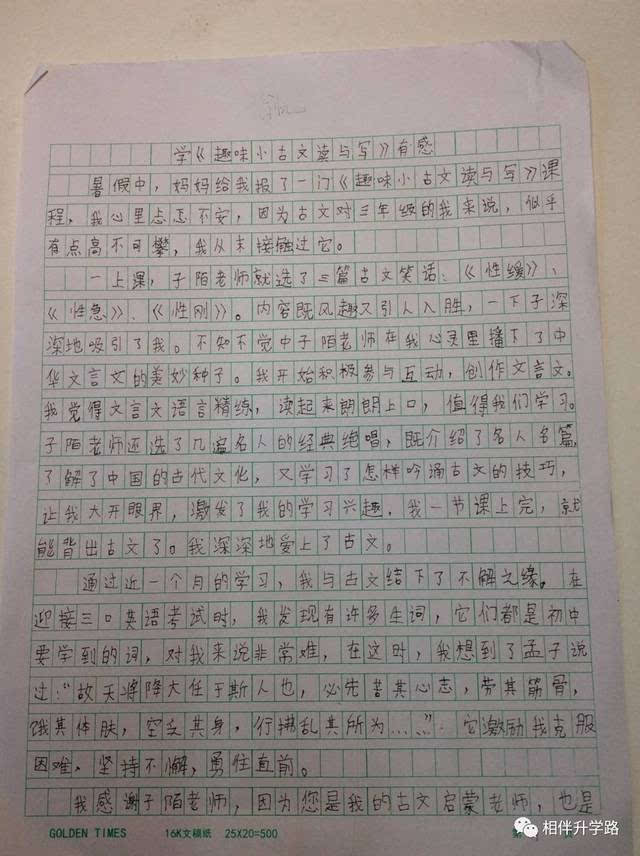 学《趣味小古文读与写》有感
暑假中，妈妈给我报了一门《趣味小古文读与写》课
程，我心里忐忑不安，因为古文对三年级的我来说，似乎
有点高不可攀，我从未接触过它。
一上课，子陌老师就选了三篇古文笑话：《性缓》、
《性急》、《性刚》。内容既风趣又引人入胜，一下子深
深地吸引了我。不知不觉中子陌老师在我心灵里播下了中
华文言文的美妙种子。我开始积极参与互动，创作文言文。
我觉得文言文语言精练，读起来朗朗上口，值得我们学习。
子陌老师还选了几遍名人的经典绝唱，既介绍了名人名篇，
了解了中国的古代文化，又学习了怎样吟诵古文的技巧，
让我大开眼界，激发了我的学习兴趣，我一节课上完，就
能背出古文了。我深深地爱上了古文。
通过近一个月的学习，我与古文结下了不解之缘。在
迎接三口英语考试时，我发现有许多生词，它们都是初中
要学到的词，对我来说非常难，在这时，我想到了孟子说
过：“故天将降大任于斯人也，必先苦其心志，劳其筋骨，
饿其体肤，空乏其身，行拂乱其所为……”。它激励我克服
困难，坚持不懈，勇往直前。
我感谢子陌老师，因为您是我的古文启蒙老师，也是
GOLDEN TIMES 16K文稿纸 25X20=500 第 页
相伴升学路